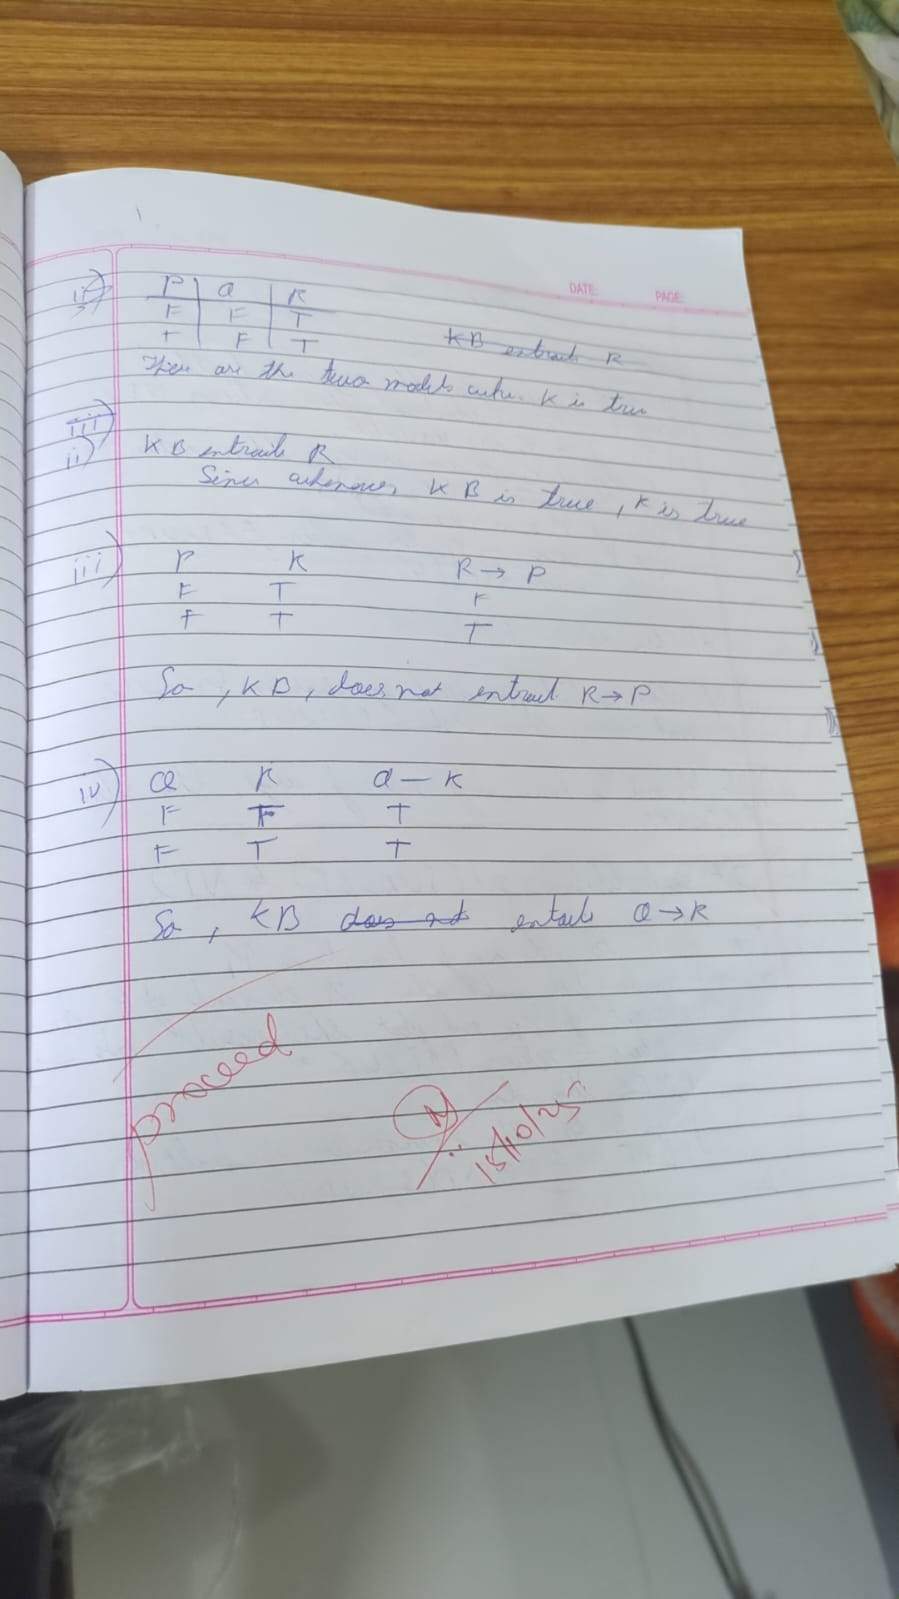 DATE: PAGE:
ii) P Q R
F F T
T F T
KB entrails R
These are the two models where R is true
iii)
ii) KB entrails R
Since whenever KB is true, R is true
iii) P R R → P
F T F
F T T
So, KB, does not entrail R → P
iv) Q R Q — R
F T T
F T T
So, KB does not entails Q → R
proceed
15/10/25